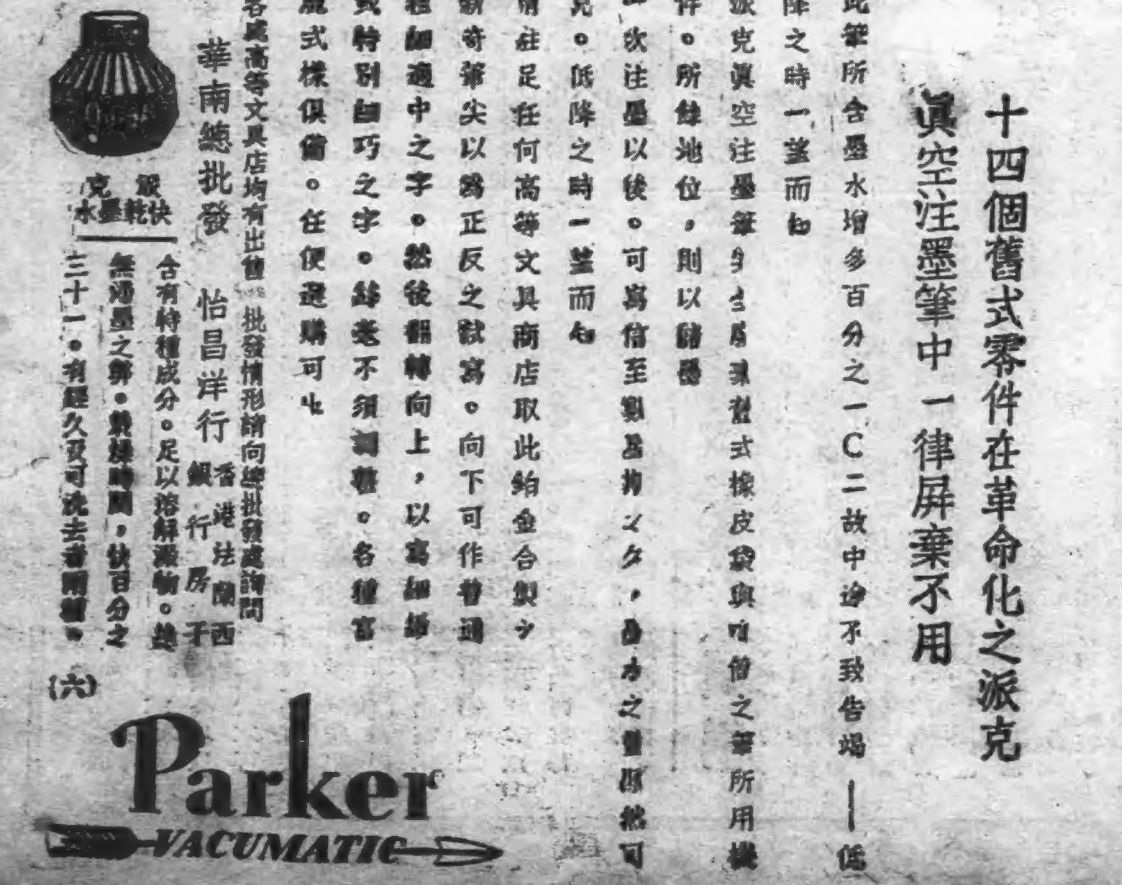 十四個舊式零件在革命化之派克
眞空注墨筆中一律屏棄不用
此筆所含墨水增多百分之一C二故中途不致告竭——低
降之時一望而知
派克眞空注墨筆 舊式橡皮袋與 之筆所用機
件。所餘地位，則以儲墨
一次注墨以後。可寫信至數 墨水之量顯然可
見。低降之時一望而知
請駐足任何高等文具商店取此鉑金合製之
新奇筆尖以爲正反之試寫。向下可作普通
粗細適中之字。然後翻轉向上，以寫細
或特別細巧之字。絲毫不須調整。各種富
麗式樣俱備。任便選購可也
各處高等文具店均有出售 批發情形請向總批發處詢問
華南總批發 怡昌洋行
香港法蘭西
銀行房子
派克
快乾墨水
含有特種成分。足以溶解滯物。
無滯墨之弊。乾燥時間，快百分之
三十一。有經久及可洗去者兩種。
(六)
Parker
VACUMATIC